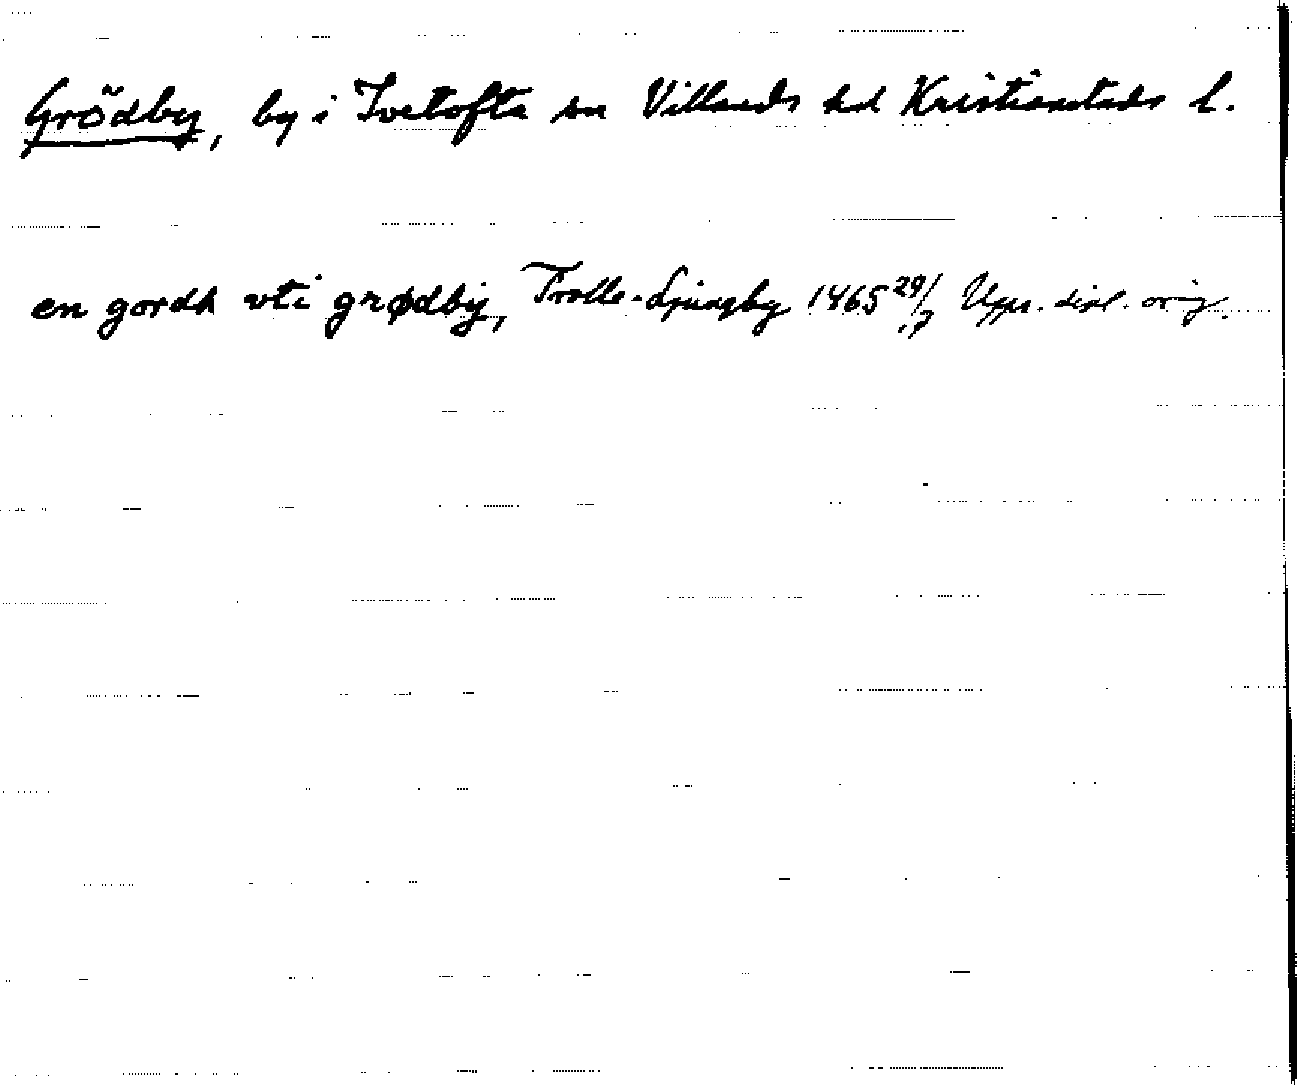 Grödby, by i Ivetofta sn Villands hd Kristianstads l.
en gordh vti grødby, Trolle-Ljungby 1465 29/7 Upps. dipl. orig.